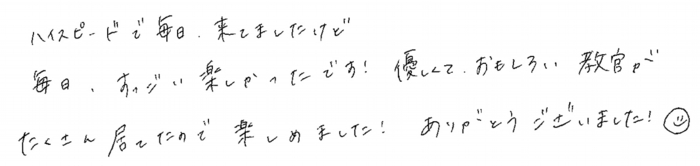 ハイスピードで毎日、来てましたけど
毎日、すっごい楽しかったです! 優しくて、おもしろい 教官が
たくさん居てたので 楽しめました! ありがとうございました!☺